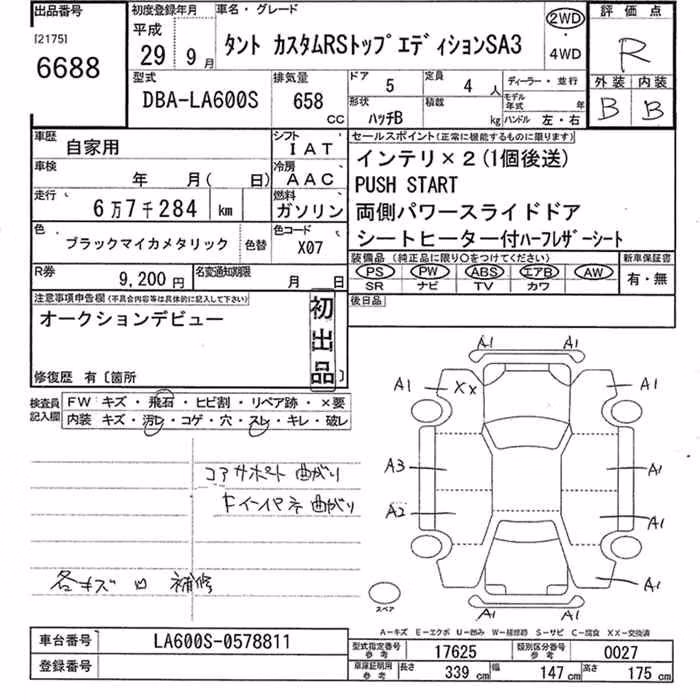 出品番号
[2175]
6688
初度登録年月
平成
29 9月
車名・グレード
タント カスタムRSトップエディションSA3
2WD
・
4WD
評価点
R
外装 内装
B B
型式
DBA-LA600S
排気量
658
CC
ドア
5
定員
4 人
形状
ハッチB
積載
kg
ディーラー・並行
モデル年式 年
ハンドル 左・右
車歴
自家用
シフト
IAT
車検
年 月( 日)
冷房
AAC
走行
6万7千284 km
燃料
ガソリン
色
ブラックマイカメタリック
色替
色コード
X07
R券
9,200 円
名変通知期限
月 日
セールスポイント(正常に機能するものに限ります)
インテリ×2(1個後送)
PUSH START
両側パワースライドドア
シートヒーター付ハーフレザーシート
装備品 (純正品に限り○をつけてください)
PS PW ABS エアB AW
SR ナビ TV カワ
新車保証書
有・無
後日品
注意事項申告欄(不具合内容等は具体的に記入して下さい)
オークションデビュー
初出品
修復歴 有〔箇所 〕
検査員記入欄
FW キズ・飛石・ヒビ割・リペア跡・×要
内装 キズ・汚レ・コゲ・穴・スレ・キレ・破レ
コアサポート曲がり
曲がり
各キズ 補修
A1 A1
A1 XX A1
A3 A1
A2 A1
A1
A1 A1
スペア
A-キズ E-エクボ U-凹み W-補修跡 S-サビ C-腐食 XX-交換済
車台番号
LA600S-0578811
登録番号
型式指定番号 参考
17625
類別区分番号 参考
0027
車庫証明用 参考
長さ 339 cm
幅 147 cm
高さ 175 cm